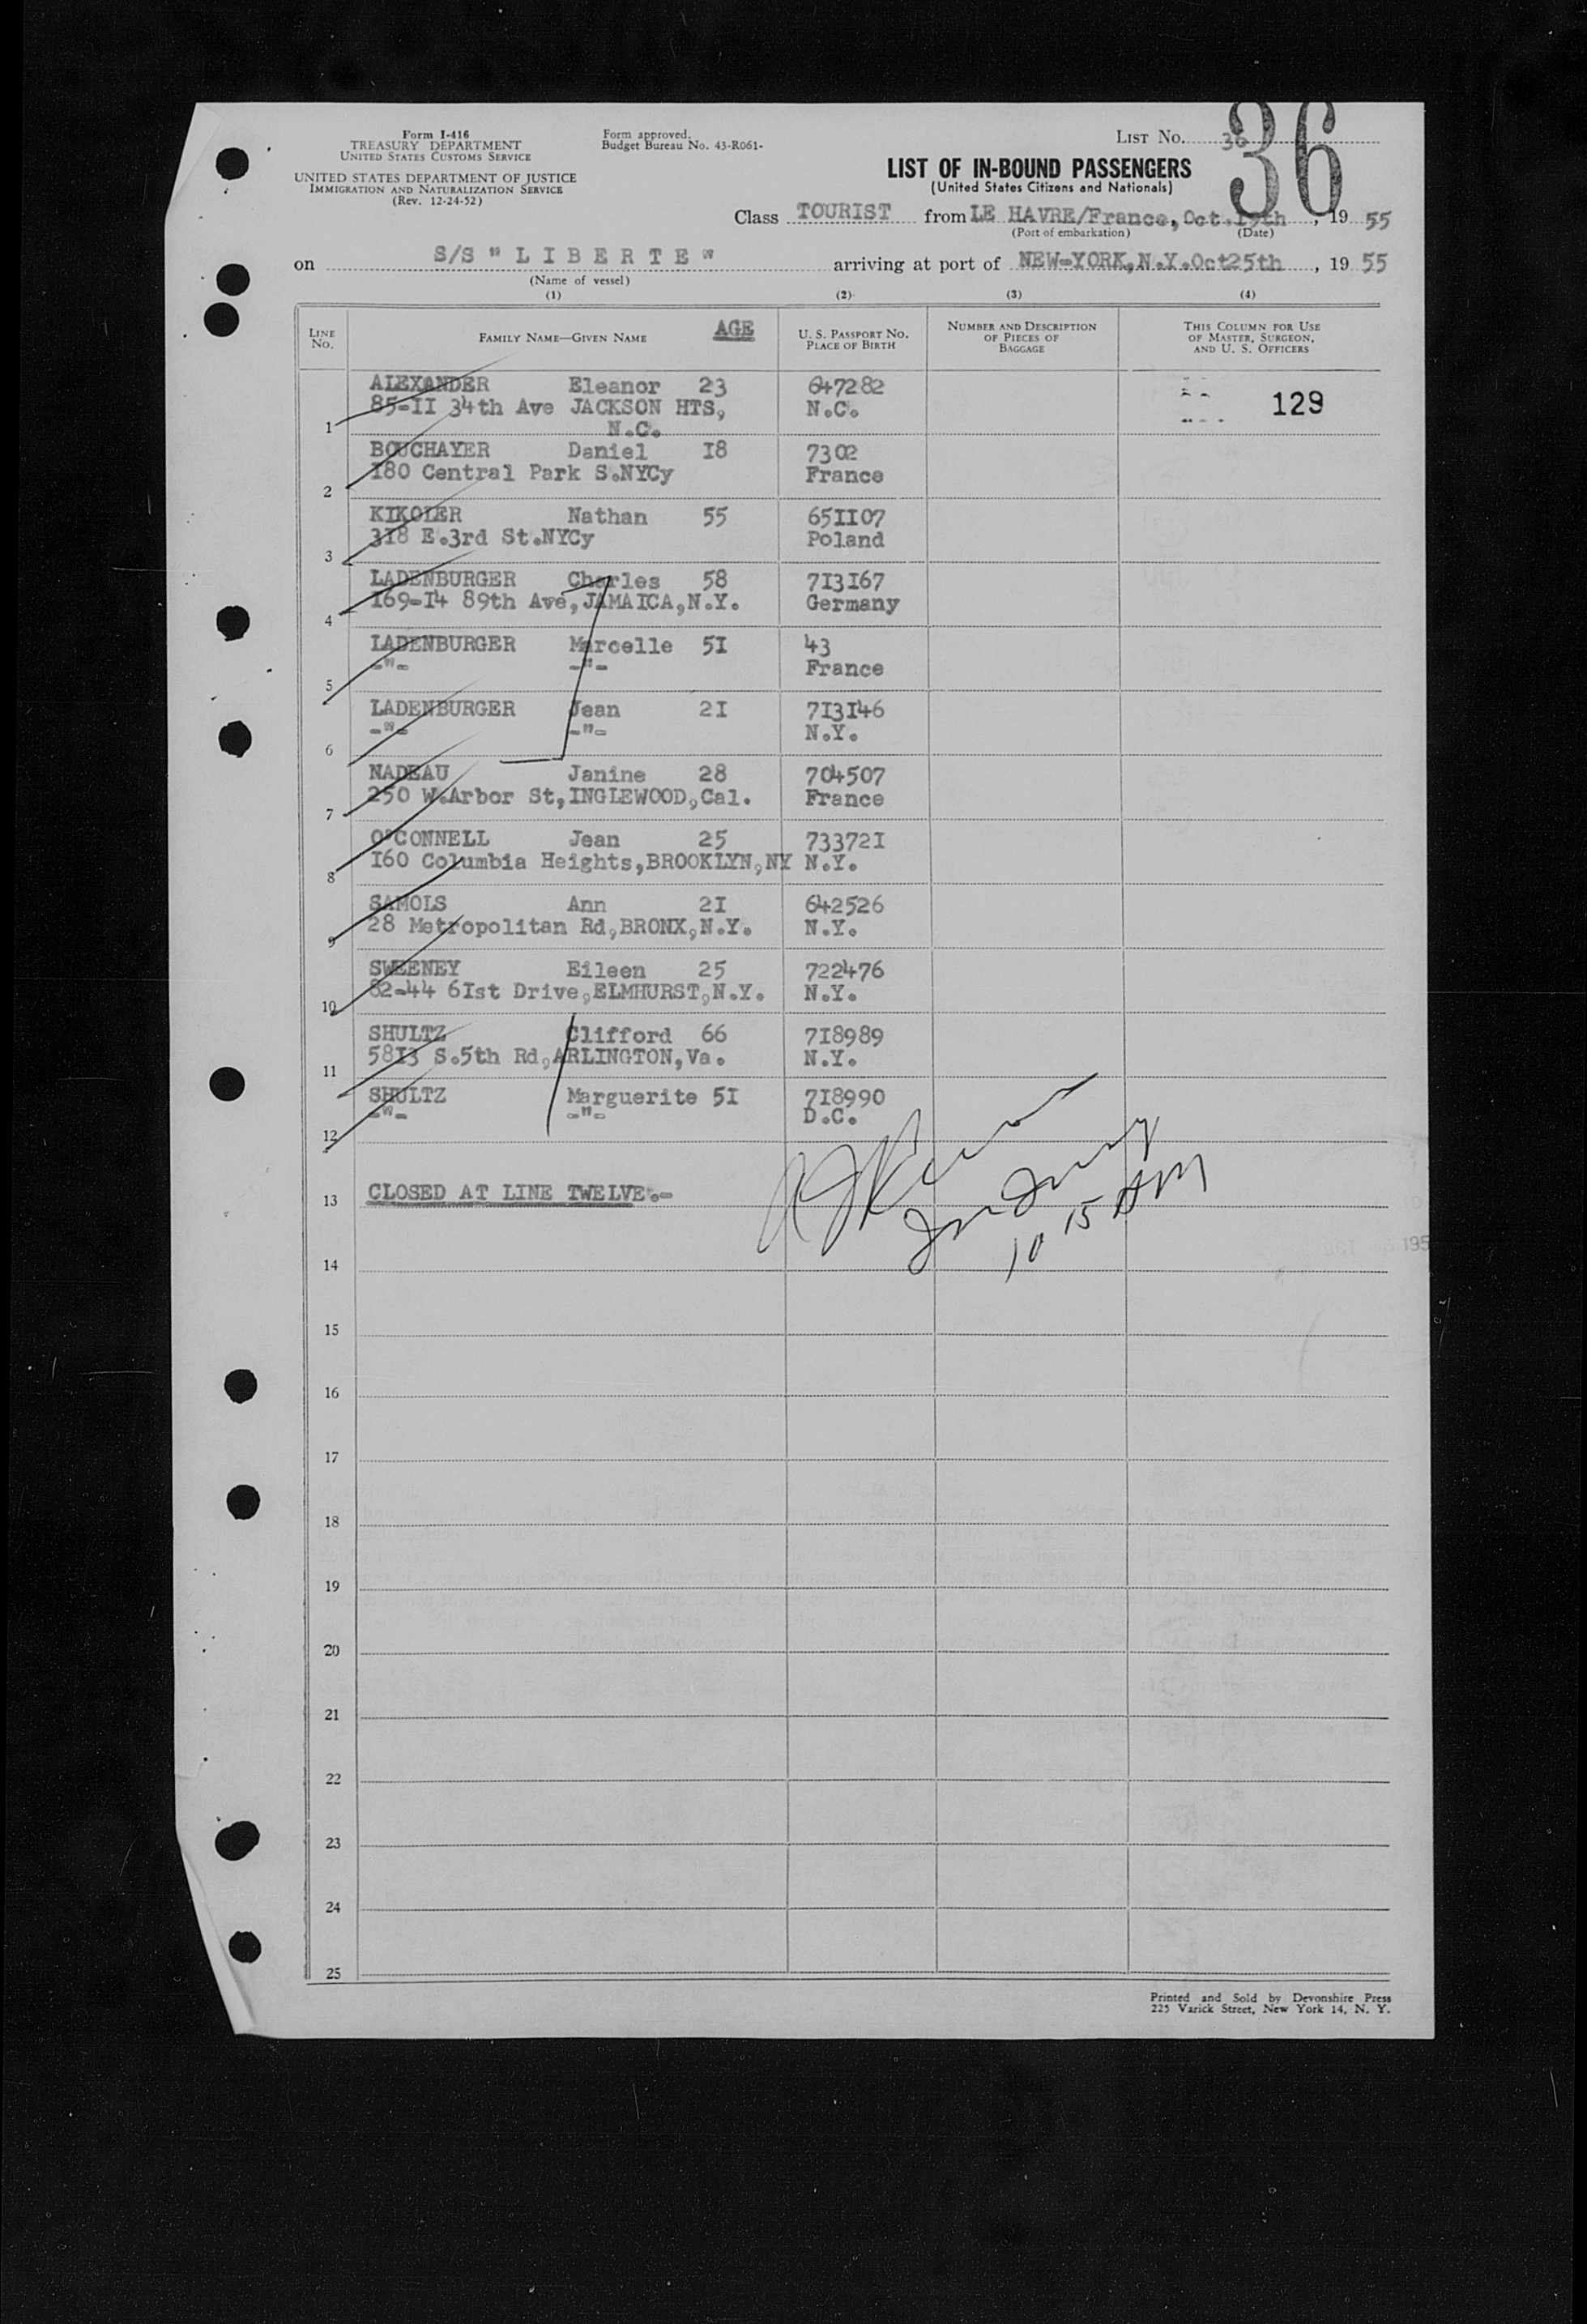 Form I-416
TREASURY DEPARTMENT
UNITED STATES CUSTOMS SERVICE
UNITED STATES DEPARTMENT OF JUSTICE
IMMIGRATION AND NATURALIZATION SERVICE
(Rev. 12-24-52)
Form approved.
Budget Bureau No. 43-R061-
LIST NO. 36
36
LIST OF IN-BOUND PASSENGERS
(United States Citizens and Nationals)
Class TOURIST from LE HAVRE/France, Oct.19th, 19 55
(Port of embarkation) (Date)
on S/S " L I B E R T E " arriving at port of NEW-YORK,N.Y.Oct25th, 19 55
(Name of vessel)
(1) (2) (3) (4)
LINE NO. FAMILY NAME—GIVEN NAME AGE U. S. PASSPORT NO. PLACE OF BIRTH NUMBER AND DESCRIPTION OF PIECES OF BAGGAGE THIS COLUMN FOR USE OF MASTER, SURGEON, AND U. S. OFFICERS
ALEXANDER Eleanor 23 647282
85-II 34th Ave JACKSON HTS, N.C. 129
1 N.C.
BOUCHAYER Daniel I8 7302
I80 Central Park S.NYCy France
2
KIKOLER Nathan 55 65II07
3I8 E.3rd St.NYCy Poland
3
LADENBURGER Charles 58 7I3I67
I69-I4 89th Ave,JAMAICA,N.Y. Germany
4
LADENBURGER Marcelle 5I 43
-"- -"- France
5
LADENBURGER Jean 2I 7I3I46
-"- -"- N.Y.
6
NADEAU Janine 28 704507
250 W.Arbor St,INGLEWOOD,Cal. France
7
O'CONNELL Jean 25 73372I
I60 Columbia Heights,BROOKLYN,NY N.Y.
8
SAMOLS Ann 2I 642526
28 Metropolitan Rd,BRONX,N.Y. N.Y.
9
SWEENEY Eileen 25 722476
82-44 6Ist Drive,ELMHURST,N.Y. N.Y.
10
SHULTZ Clifford 66 7I8989
58I3 S.5th Rd,ARLINGTON,Va. N.Y.
11
SHULTZ Marguerite 5I 7I8990
-"- -"- D.C.
12
13 CLOSED AT LINE TWELVE.-
10 15 AM
14
15
16
17
18
19
20
21
22
23
24
25
Printed and Sold by Devonshire Press
225 Varick Street, New York 14, N. Y.